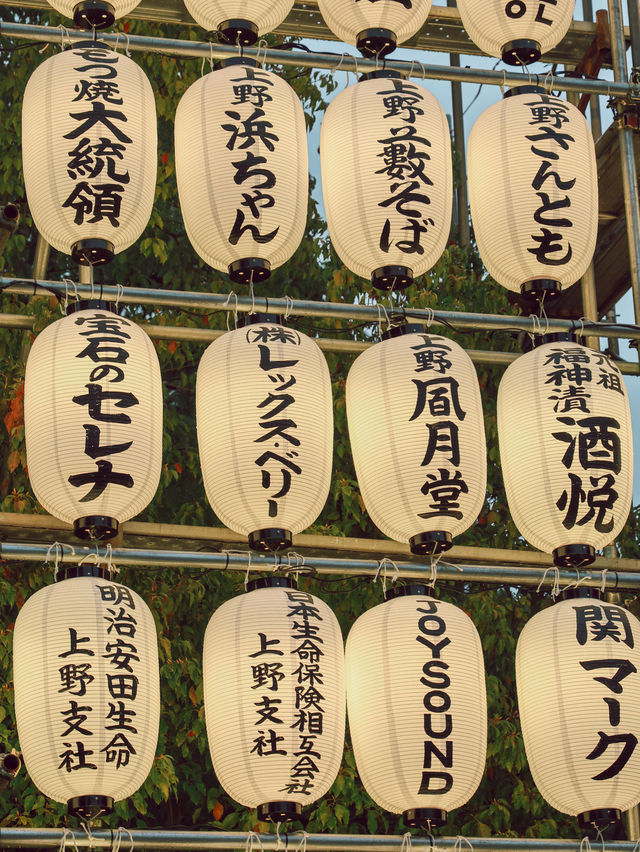 もつ焼
大統領
上野
浜ちゃん
上野
藪そば
上野
さんとも
宝石の
セレナ
(株)
レックスベリー
上野
風月堂
元祖
福神漬
酒悦
明治安田生命
上野支社
日本生命保険相互会社
上野支社
JOYSOUND
関
マーク